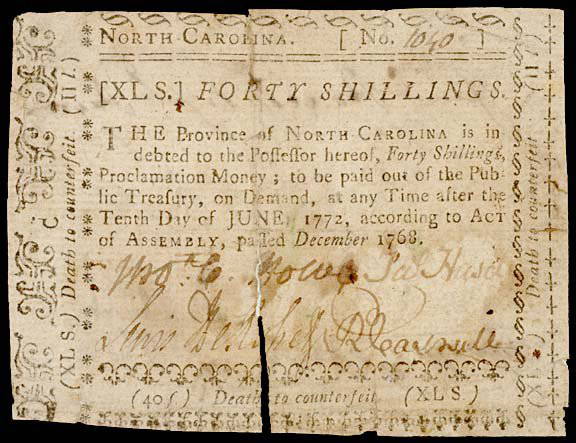 NORTH-CAROLINA. [ No. 1040 ]
[XLS.] FORTY SHILLINGS.
THE Province of NORTH-CAROLINA is in-
debted to the Possessor hereof, Forty Shillings,
Proclamation Money; to be paid out of the Pub-
lic Treasury, on Demand, at any Time after the
Tenth Day of JUNE, 1772, according to ACT
of ASSEMBLY, passed December 1768.
Lewis
(XLS.) Death to counterfeit (Il.)
Death to counterfeit (Il.)
(40s) Death to counterfeit (XLS)